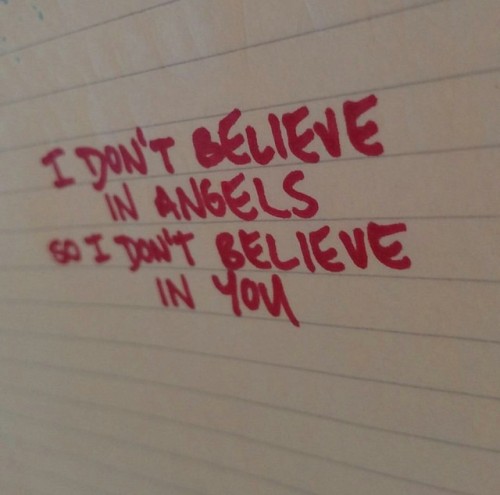 I DON'T BELIEVE
IN ANGELS
SO I DON'T BELIEVE
IN YOU